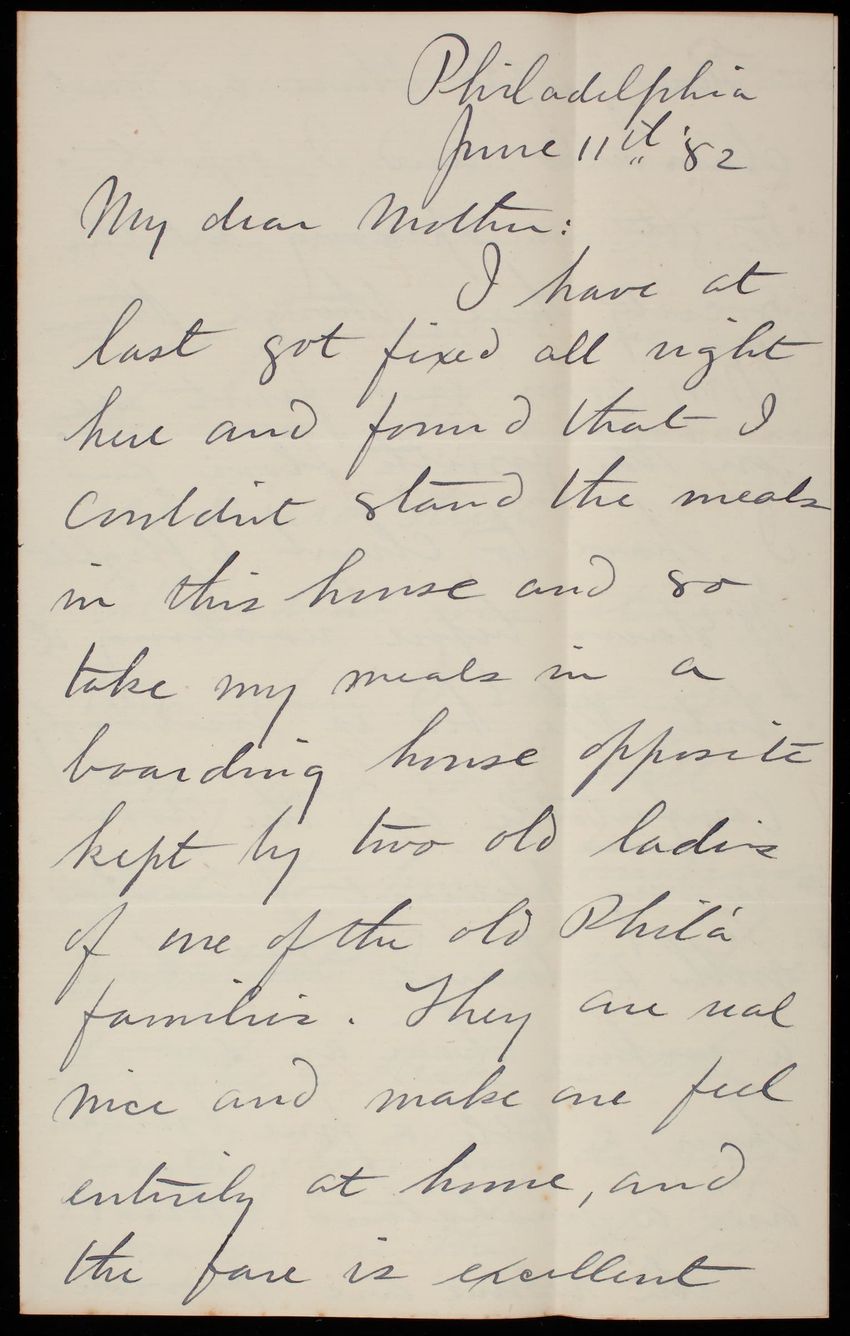 Philadelphia
June 11th '82
My dear Mother:
I have at
last got fixed all right
here and found that I
couldn't stand the meals
in this house and so
take my meals in a
boarding house opposite
kept by two old ladies
of one of the old Phila'
families. They are real
nice and make one feel
entirely at home, and
the fare is excellent